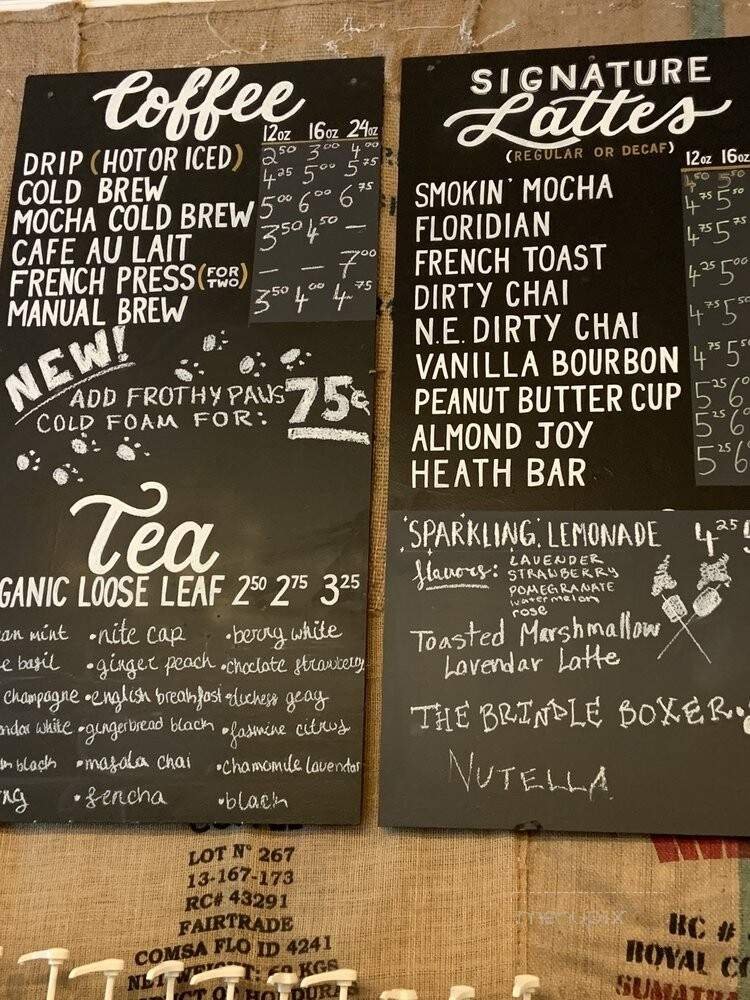 Coffee
12oz 16oz 24oz
DRIP (HOT OR ICED) 2⁵⁰ 3⁰⁰ 4⁰⁰
COLD BREW 4²⁵ 5⁰⁰ 5⁷⁵
MOCHA COLD BREW 5⁰⁰ 6⁰⁰ 6⁷⁵
CAFE AU LAIT 3⁵⁰ 4⁵⁰ —
FRENCH PRESS (FOR TWO) — — 7⁰⁰
MANUAL BREW 3⁵⁰ 4⁰⁰ 4⁷⁵
NEW!
ADD FROTHY PAWS 75¢
COLD FOAM FOR:
Tea
GANIC LOOSE LEAF 2⁵⁰ 2⁷⁵ 3²⁵
an mint •nite cap •berry white
e basil •ginger peach •choclate strawberry
champagne •english breakfast •duchess gray
ndar white •gingerbread black •jasmine citrus
black •masala chai •chamomile lavendar
ng •sencha •black
SIGNATURE
Lattes
(REGULAR OR DECAF)
12oz 16oz
SMOKIN' MOCHA 4⁵⁰ 5⁵⁰
FLORIDIAN 4⁷⁵ 5⁵⁰
FRENCH TOAST 4⁷⁵ 5⁷⁵
DIRTY CHAI 4²⁵ 5⁰⁰
N.E. DIRTY CHAI 4⁷⁵ 5⁵⁰
VANILLA BOURBON 4⁷⁵ 5⁵
PEANUT BUTTER CUP 5²⁵ 6
ALMOND JOY 5²⁵ 6
HEATH BAR 5²⁵ 6
'SPARKLING' LEMONADE 4²⁵
flavors: LAVENDER
STRAWBERRY
POMEGRANATE
watermelon
rose
Toasted Marshmallow
Lavendar Latte
THE BRINDLE BOXER
NUTELLA
LOT N° 267
13-167-173
RC# 43291
FAIRTRADE
COMSA FLO ID 4241
NET WEIGHT: 69 KGS
OF HONDURAS
menupix
RC #
ROYAL CO
SUMATR